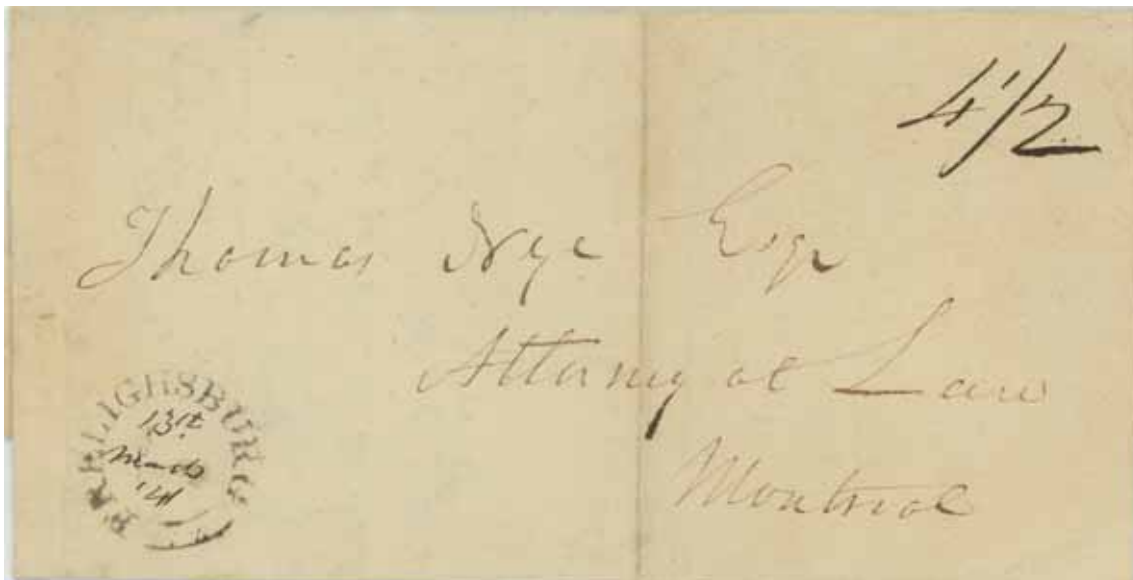 4 1/2
Thomas Nye Esqr
Attorney at Law
Montreal
FRELIGHSBURG
13th
March